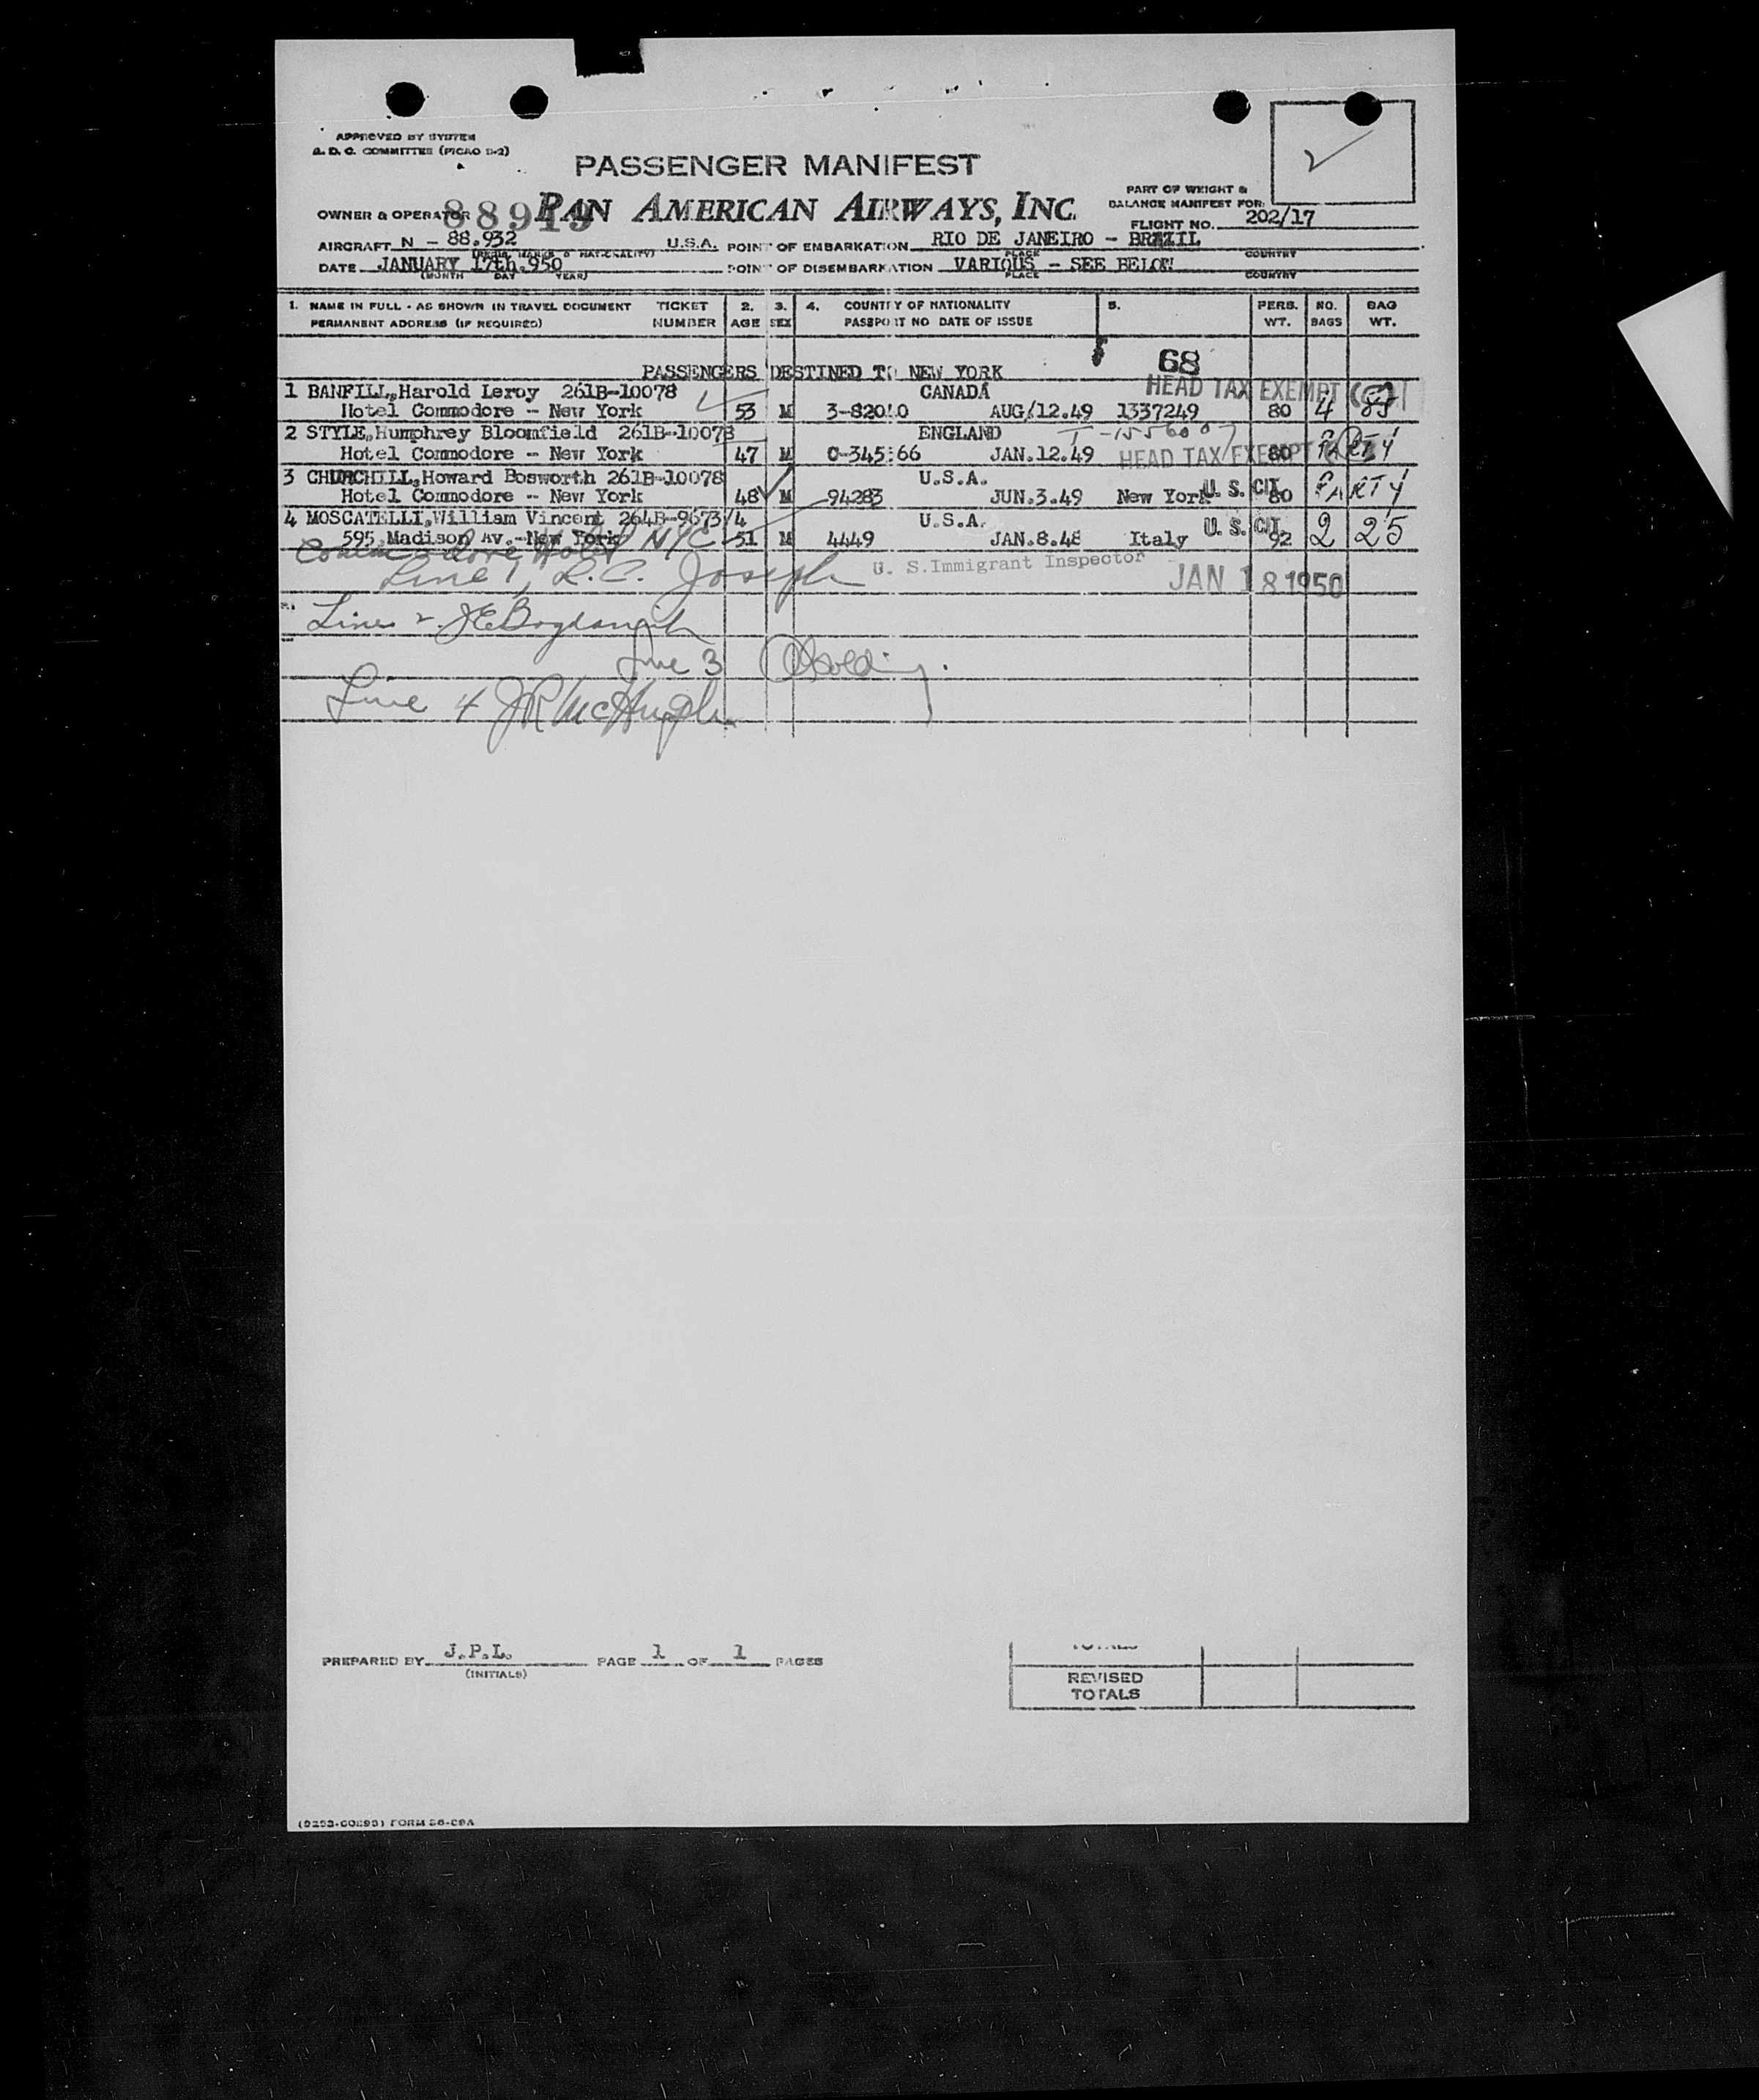 APPROVED BY SYSTEM
A. D. C. COMMITTEE (PICAO D-2)
PASSENGER MANIFEST
PART OF WEIGHT &
BALANCE MANIFEST FOR:
OWNER & OPERATOR PAN AMERICAN AIRWAYS, INC.
FLIGHT NO. 202/17
AIRCRAFT N - 88.932 U.S.A. POINT OF EMBARKATION RIO DE JANEIRO - BRAZIL
(REGIS. MARKS & NATIONALITY) PLACE COUNTRY
DATE JANUARY 17th.950 POINT OF DISEMBARKATION VARIOUS - SEE BELOW
(MONTH DAY YEAR) PLACE COUNTRY
1. NAME IN FULL - AS SHOWN IN TRAVEL DOCUMENT TICKET 2. 3. 4. COUNTRY OF NATIONALITY 5. PERS. NO. BAG
PERMANENT ADDRESS (IF REQUIRED) NUMBER AGE SEX PASSPORT NO DATE OF ISSUE WT. BAGS WT.
68
PASSENGERS DESTINED TO NEW YORK
HEAD TAX EXEMPT
1 BANFILL,Harold Leroy 261B-10078 CANADA
Hotel Commodore -- New York 53 M AUG/12.49 1337249 80 4
2 STYLE,Humphrey Bloomfield 261B-10078 ENGLAND
Hotel Commodore -- New York 47 M JAN.12.49 HEAD TAX EXEMPT 80 PARTY
3 CHURCHILL,Howard Bosworth 261B-10078 U.S.A.
Hotel Commodore -- New York 48 M 94283 JUN.3.49 New York U. S. CIT. 80 PARTY
4 MOSCATELLI,William Vincent 264B-9673/4 U.S.A.
595 Madison Av.-New York 51 M 4449 JAN.8.48 Italy U. S. CIT. 92 2 25
Commodore Hotel NYC
Line 1, L.C. Joseph U. S.Immigrant Inspector JAN 18 1950
Line 2.
Line 3
Line 4 JR McHugh
PREPARED BY J.P.L. PAGE 1 OF 1 PAGES
(INITIALS)
TOTALS
REVISED
TOTALS